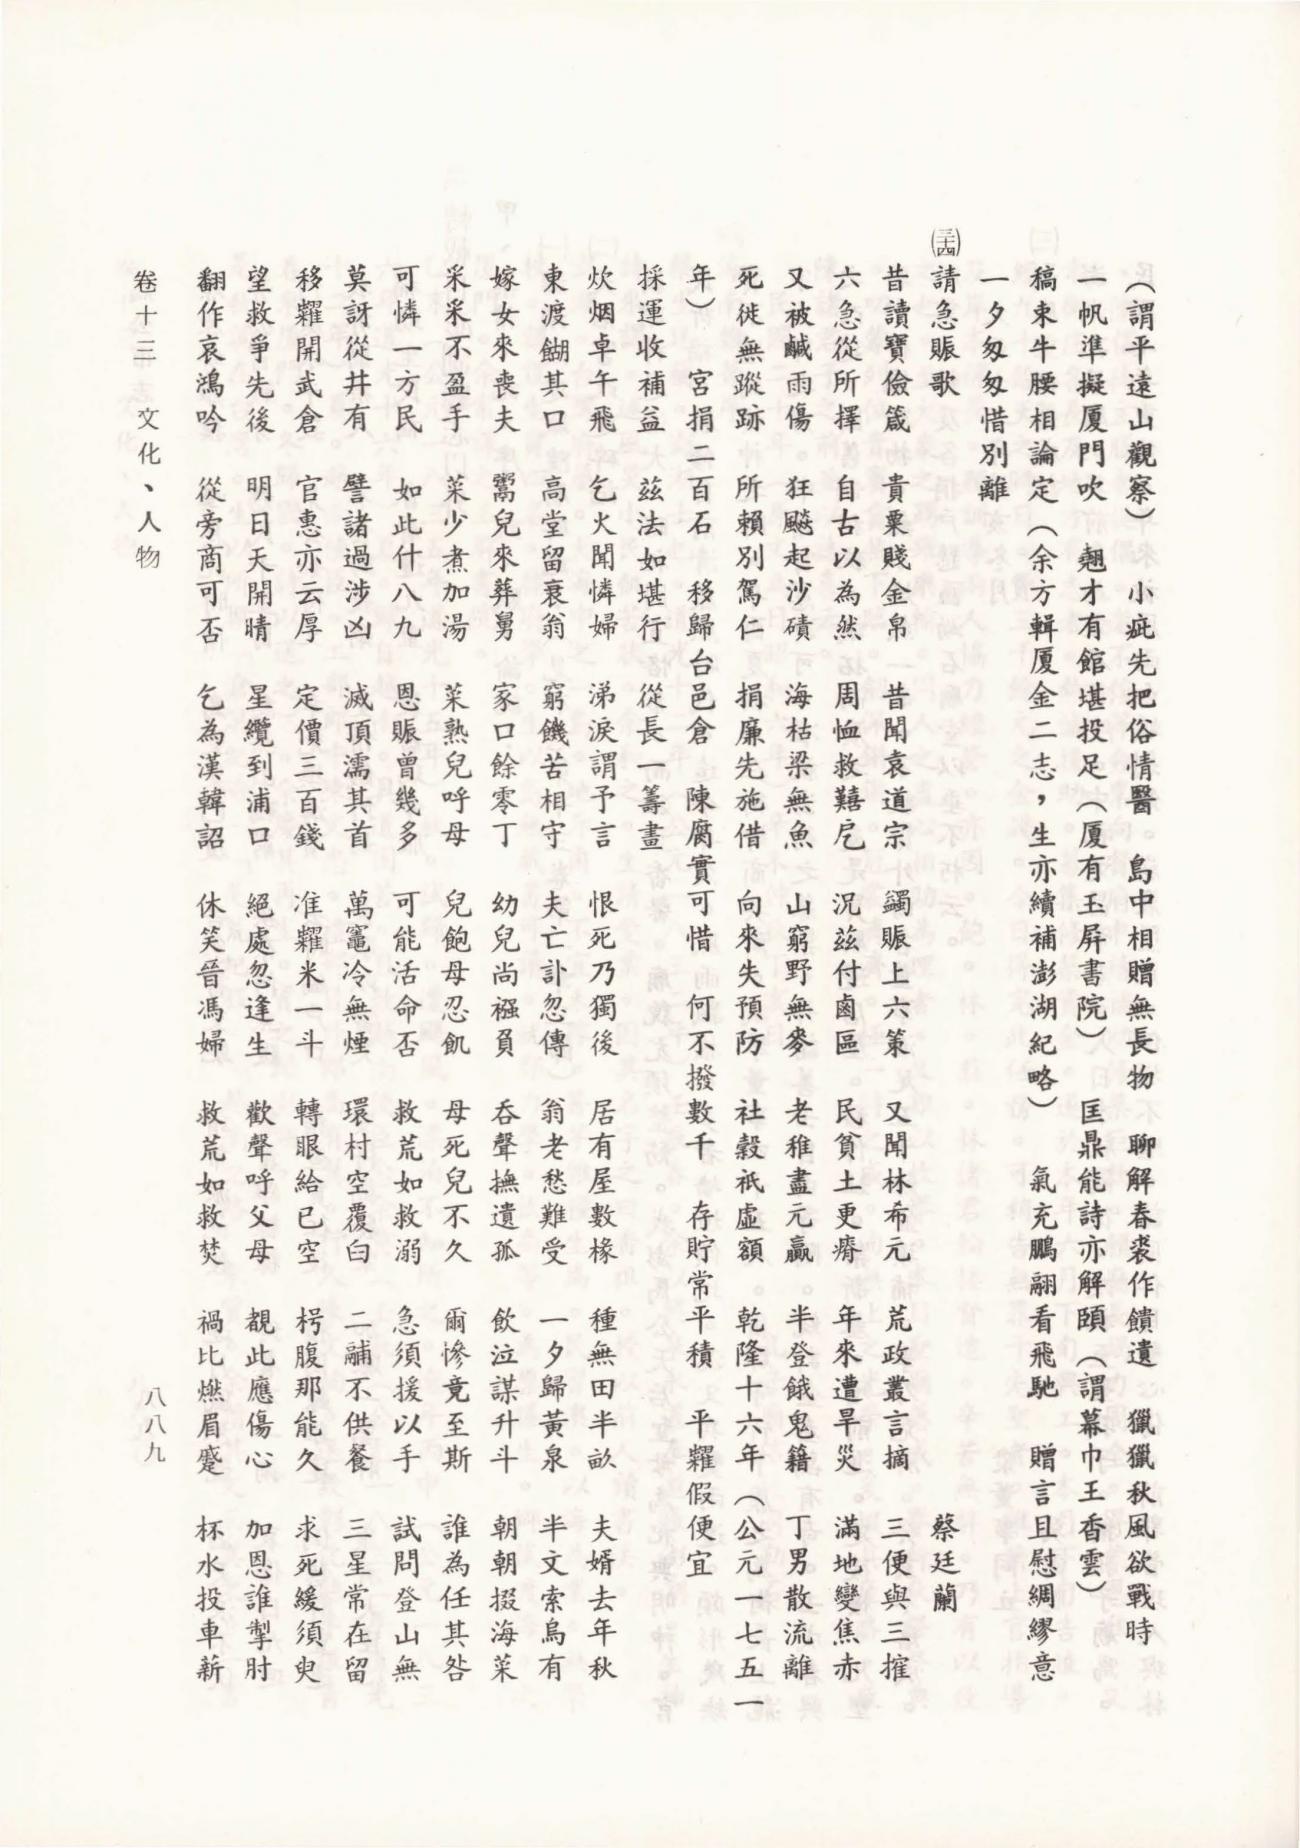 （謂平遠山觀察）　小疵先把俗情醫　島中相贈無長物　聊解春裘作饋遺　獵獵秋風欲戰時
一帆準擬厦門吹　翹才有館堪投足（厦有玉屏書院）　匡鼎能詩亦解頤（謂幕巾王香雲）
稿束牛腰相論定（余方輯厦金二志，生亦續補澎湖紀略）　氣充鵬翮看飛馳　贈言且慰綢繆意
一夕匆匆惜別離
㉞請急賑歌　蔡廷蘭
昔讀寶儉箴　貴粟賤金帛　昔聞袁道宗　蠲賑上六策　又聞林希元　荒政叢言摘　三便與三搉
六急從所擇　自古以為然　周恤救囏戹　況茲付鹵區　民貧土更瘠　年來遭旱災　滿地變焦赤
又被鹹雨傷　狂飈起沙磧　海枯梁無魚　山窮野無麥　老稚盡元羸　半登餓鬼籍　丁男散流離
死徙無蹤跡　所賴別駕仁　捐廉先施借　向來失預防　社穀祇虛額　乾隆十六年（公元一七五一
年）　宮捐二百石　移歸台邑倉　陳腐實可惜　何不撥數千　存貯常平積　平糶假便宜
採運收補益　茲法如堪行　從長一籌畫
炊烟卓午飛　乞火聞憐婦　涕淚謂予言　恨死乃獨後　居有屋數椽　種無田半畝　夫婿去年秋
東渡餬其口　高堂留衰翁　窮饑苦相守　夫亡訃忽傳　翁老愁難受　一夕歸黃泉　半文索烏有
嫁女來喪夫　鬻兒來葬舅　家口餘零丁　幼兒尚襁負　吞聲撫遺孤　飲泣謀升斗　朝朝掇海菜
采采不盈手　菜少煮加湯　菜熟兒呼母　兒飽母忍飢　母死兒不久　爾慘竟至斯　誰為任其咎
可憐一方民　如此什八九　恩賑曾幾多　可能活命否　救荒如救溺　急須援以手　試問登山無
莫訝從井有　譬諸過涉凶　滅頂濡其首　萬竈冷無煙　環村空覆臼　二鬴不供餐　三星常在留
移糶開武倉　官惠亦云厚　定價三百錢　准糶米一斗　轉眼給已空　枵腹那能久　求死緩須臾
望救爭先後　明日天開晴　星纜到浦口　絕處忽逢生　歡聲呼父母　覩此應傷心　加恩誰掣肘
翻作哀鴻吟　從旁商可否　乞為漢韓詔　休笑晉馮婦　救荒如救焚　禍比燃眉蹙　杯水投車薪
卷十三　文化、人物
八八九